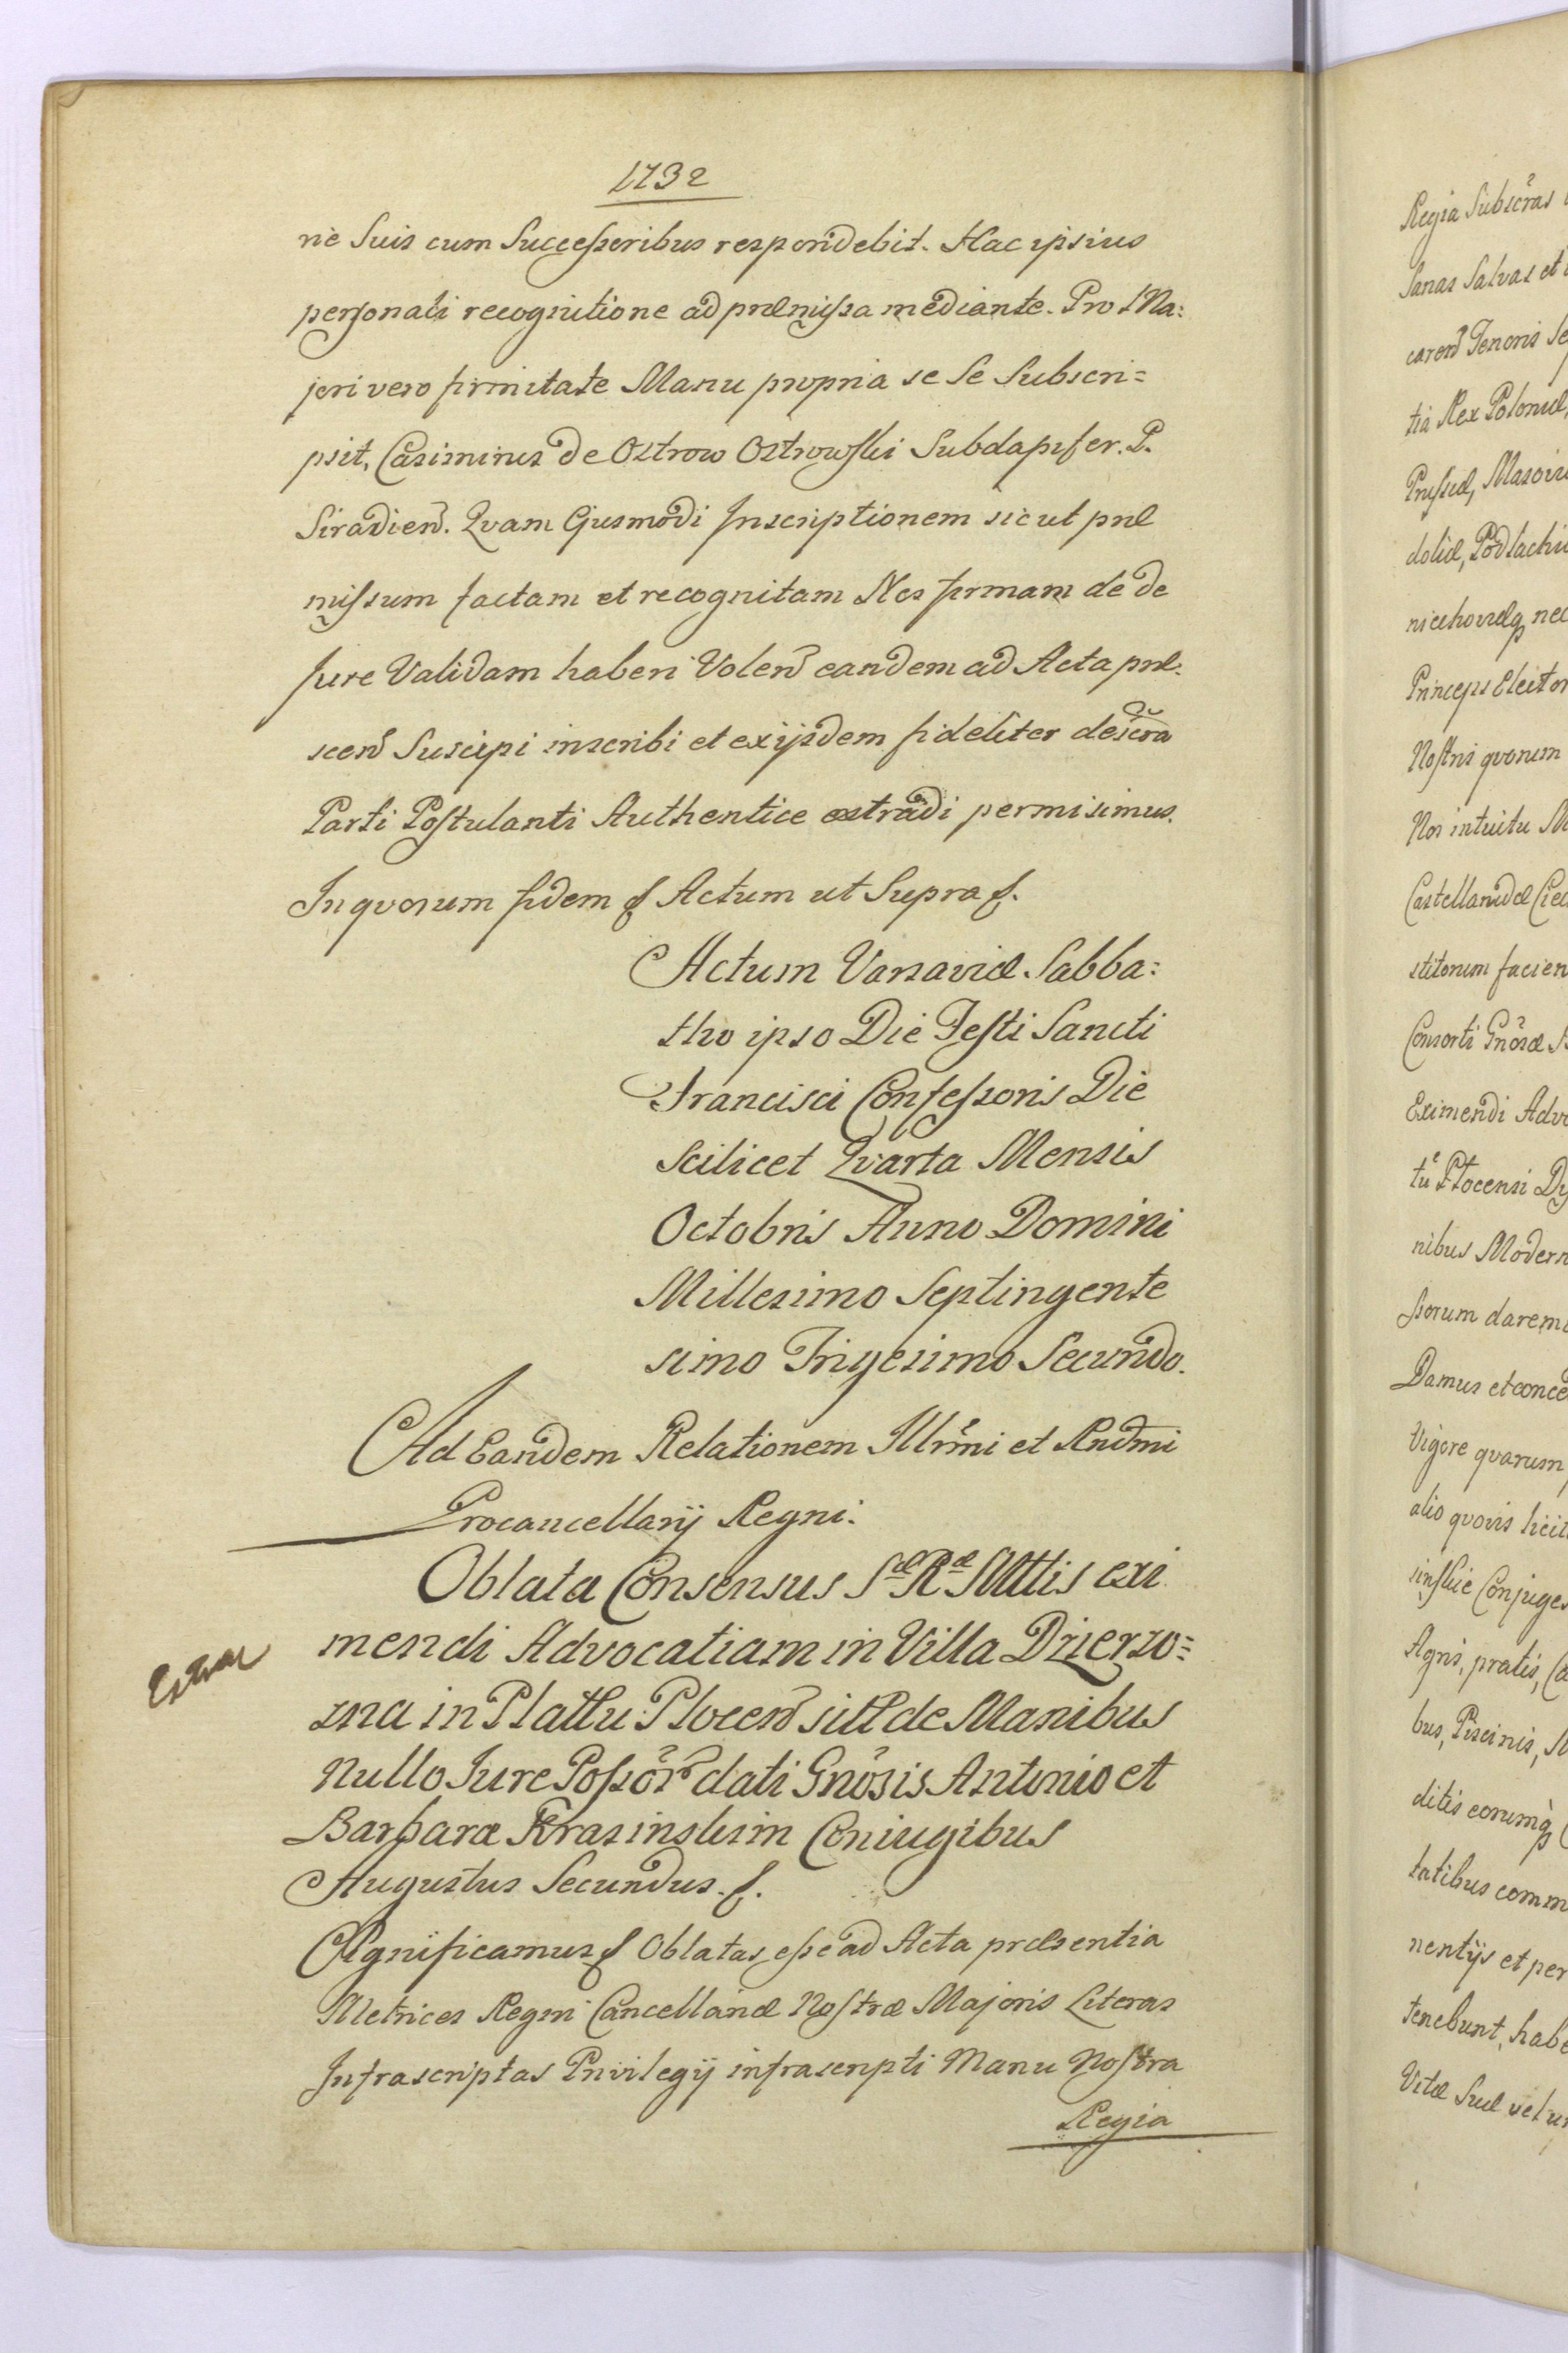 1732
rie Suis cum Successoribus respondebit. Hac ipsius
personali recognitione ad præmissa mediante. Pro Ma:
jori vero firmitate Manu propria se Se Subscri=
psit, Casimirus De Ostrow Ostrowski Subdapifer. P.
Siradien. Qvam Ejusmodi Inscriptionem sicut præ
missum factam et recognitam Nos firmam de de
Jure Validam haberi Volen eandem ad Acta præ:
scen Suscipi inscribi et exijsdem fideliter descra
Parti Postulanti Authentice extradi permisimus.
In qvorum fidem Actum ut Supra
Actum Varsaviæ Sabba:
tho ipso Die Festi Sancti
Francisci Confessoris Die
Scilicet Qvarta Mensis
Octobris Anno Domini
Millesimo Septingente
simo Trigesimo Secundo.
Ad Eandem Relationem Illrmi et Rndmi
Procancellarij Regni.
Oblata Consensus Sæ Ræ Mttis exi
mendi Advocatiam in Villa Dzierzo=
zna in Plattu Plocen sitt de Manibus
Nullo Jure Possor dati Gnosis Antonio et
Barbaræ Krasinskim Coniugibus
Augustus Secundus.
Significamus Oblatas esse ad Acta præsentia
Metrices Regni Cancellariæ Nostræ Majoris Literas
Infrascriptas Privilegij infrascripti Manu Nostra
Regia
Regia Subscras
Sanas Salvas et
caren Tenoris Se
tia Rex Poloniæ,
Prussiæ, Masovi
doliæ, Podlachi
niechoviæq nec
Princeps Elector
Nostris qvorum
Nos intuitu M
Castellanidæ Cie
stitorum facien
Consorti Gnosæ
Eximendi Advo
tu Plocensi Dz
nibus Modern
ssorum darem
Damus et conce
Vigore qvarum
alio qvovis licit
sinskie Conjuges
Agris, pratis, Ca
bus, Piscinis,
ditis eorumq
tatibus comm
nentijs et per
tenebunt, habe
Vitæ Suæ vel u